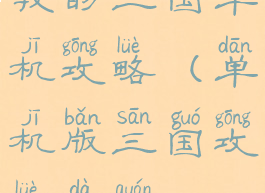 的三国单
jī gōng lüè dān
机攻略（单
jī bǎn sān guó gōng
机版三国攻
lüè dà quán